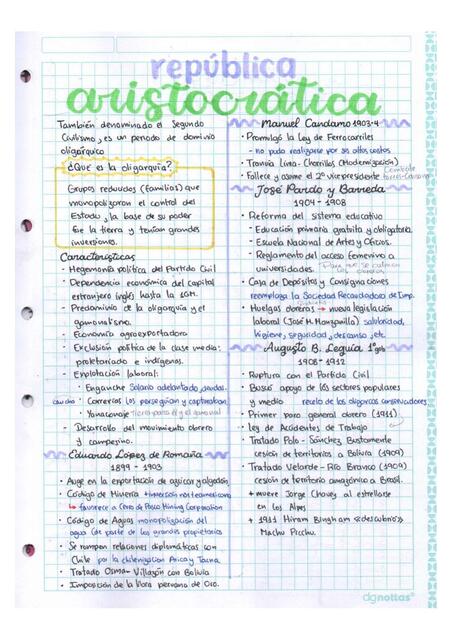 república
aristocrática
También denominado el Segundo
Civilismo, es un periodo de dominio
oligárquico
¿Qué es la oligarquía?
Grupos reducidos (familias) que
monopolizaron el control del
Estado, la base de su poder
fue la tierra y tenían grandes
inversiones.
Características
- Hegemonía política del Partido Civil
- Dependencia económica del capital
extranjero inglés hasta la 1GM.
- Predominio de la oligarquía y el
gamonalismo.
- Economía agroexportadora
- Exclusión política de la clase media,
proletariado e indígenas.
- Explotación laboral:
• Enganche Salario adelantado, deudas.
caucho • Correrías los perseguían y capturaban
• Yanaconaje Tierra para él y el gamonal
- Desarrollo del movimiento obrero
y campesino.
Eduardo López de Romaña
1899 - 1903
• Auge en la exportación de azúcar y algodón
• Código de Minería + inversión norteamericana
↳ favorece a Cerro de Pasco Mining Corporation
• Código de Aguas monopolización del
agua por parte de los grandes propietarios
• Se rompen relaciones diplomáticas con
Chile por la chilenización Arica y Tacna
• Tratado Osma-Villazón con Bolivia
• Imposición de la libra peruana de Oro.
Manuel Candamo 1903-4
• Promulgó la Ley de Ferrocarriles
- no pudo realizarse por sus altos costos
• Tranvía Lima-Chorrillos (Modernización)
• Fallece y asume el 2º vicepresidente
José Pardo y Barreda
1904 - 1908
• Reforma del sistema educativo
- Educación primaria gratuita y obligatoria
- Escuela Nacional de Artes y Oficios.
- Reglamento del acceso femenino a
universidades. Para que se calmen los obreros
• Caja de Depósitos y Consignaciones
reemplaza la Sociedad Recaudadora de Imp.
• Huelgas obreras → nueva legislación
laboral (José M. Manzanilla) salubridad,
higiene, seguridad, descanso, etc
Augusto B. Leguía 1º gob
1908 - 1912
• Ruptura con el Partido Civil
• Buscó apoyo de los sectores populares
y medio recelo de los oligarcas conservadores
• Primer paro general obrero (1911)
• Ley de Accidentes de Trabajo
• Tratado Polo - Sánchez Bustamante
cesión de territorios a Bolivia (1909)
• Tratado Velarde - Río Branco (1909)
cesión de territorio amazónico a Brasil.
+ muere Jorge Chavez al estrellarse
en los Alpes
+ 1911 Hiram Bingham «descubrió»
Machu Picchu.
dgnottas